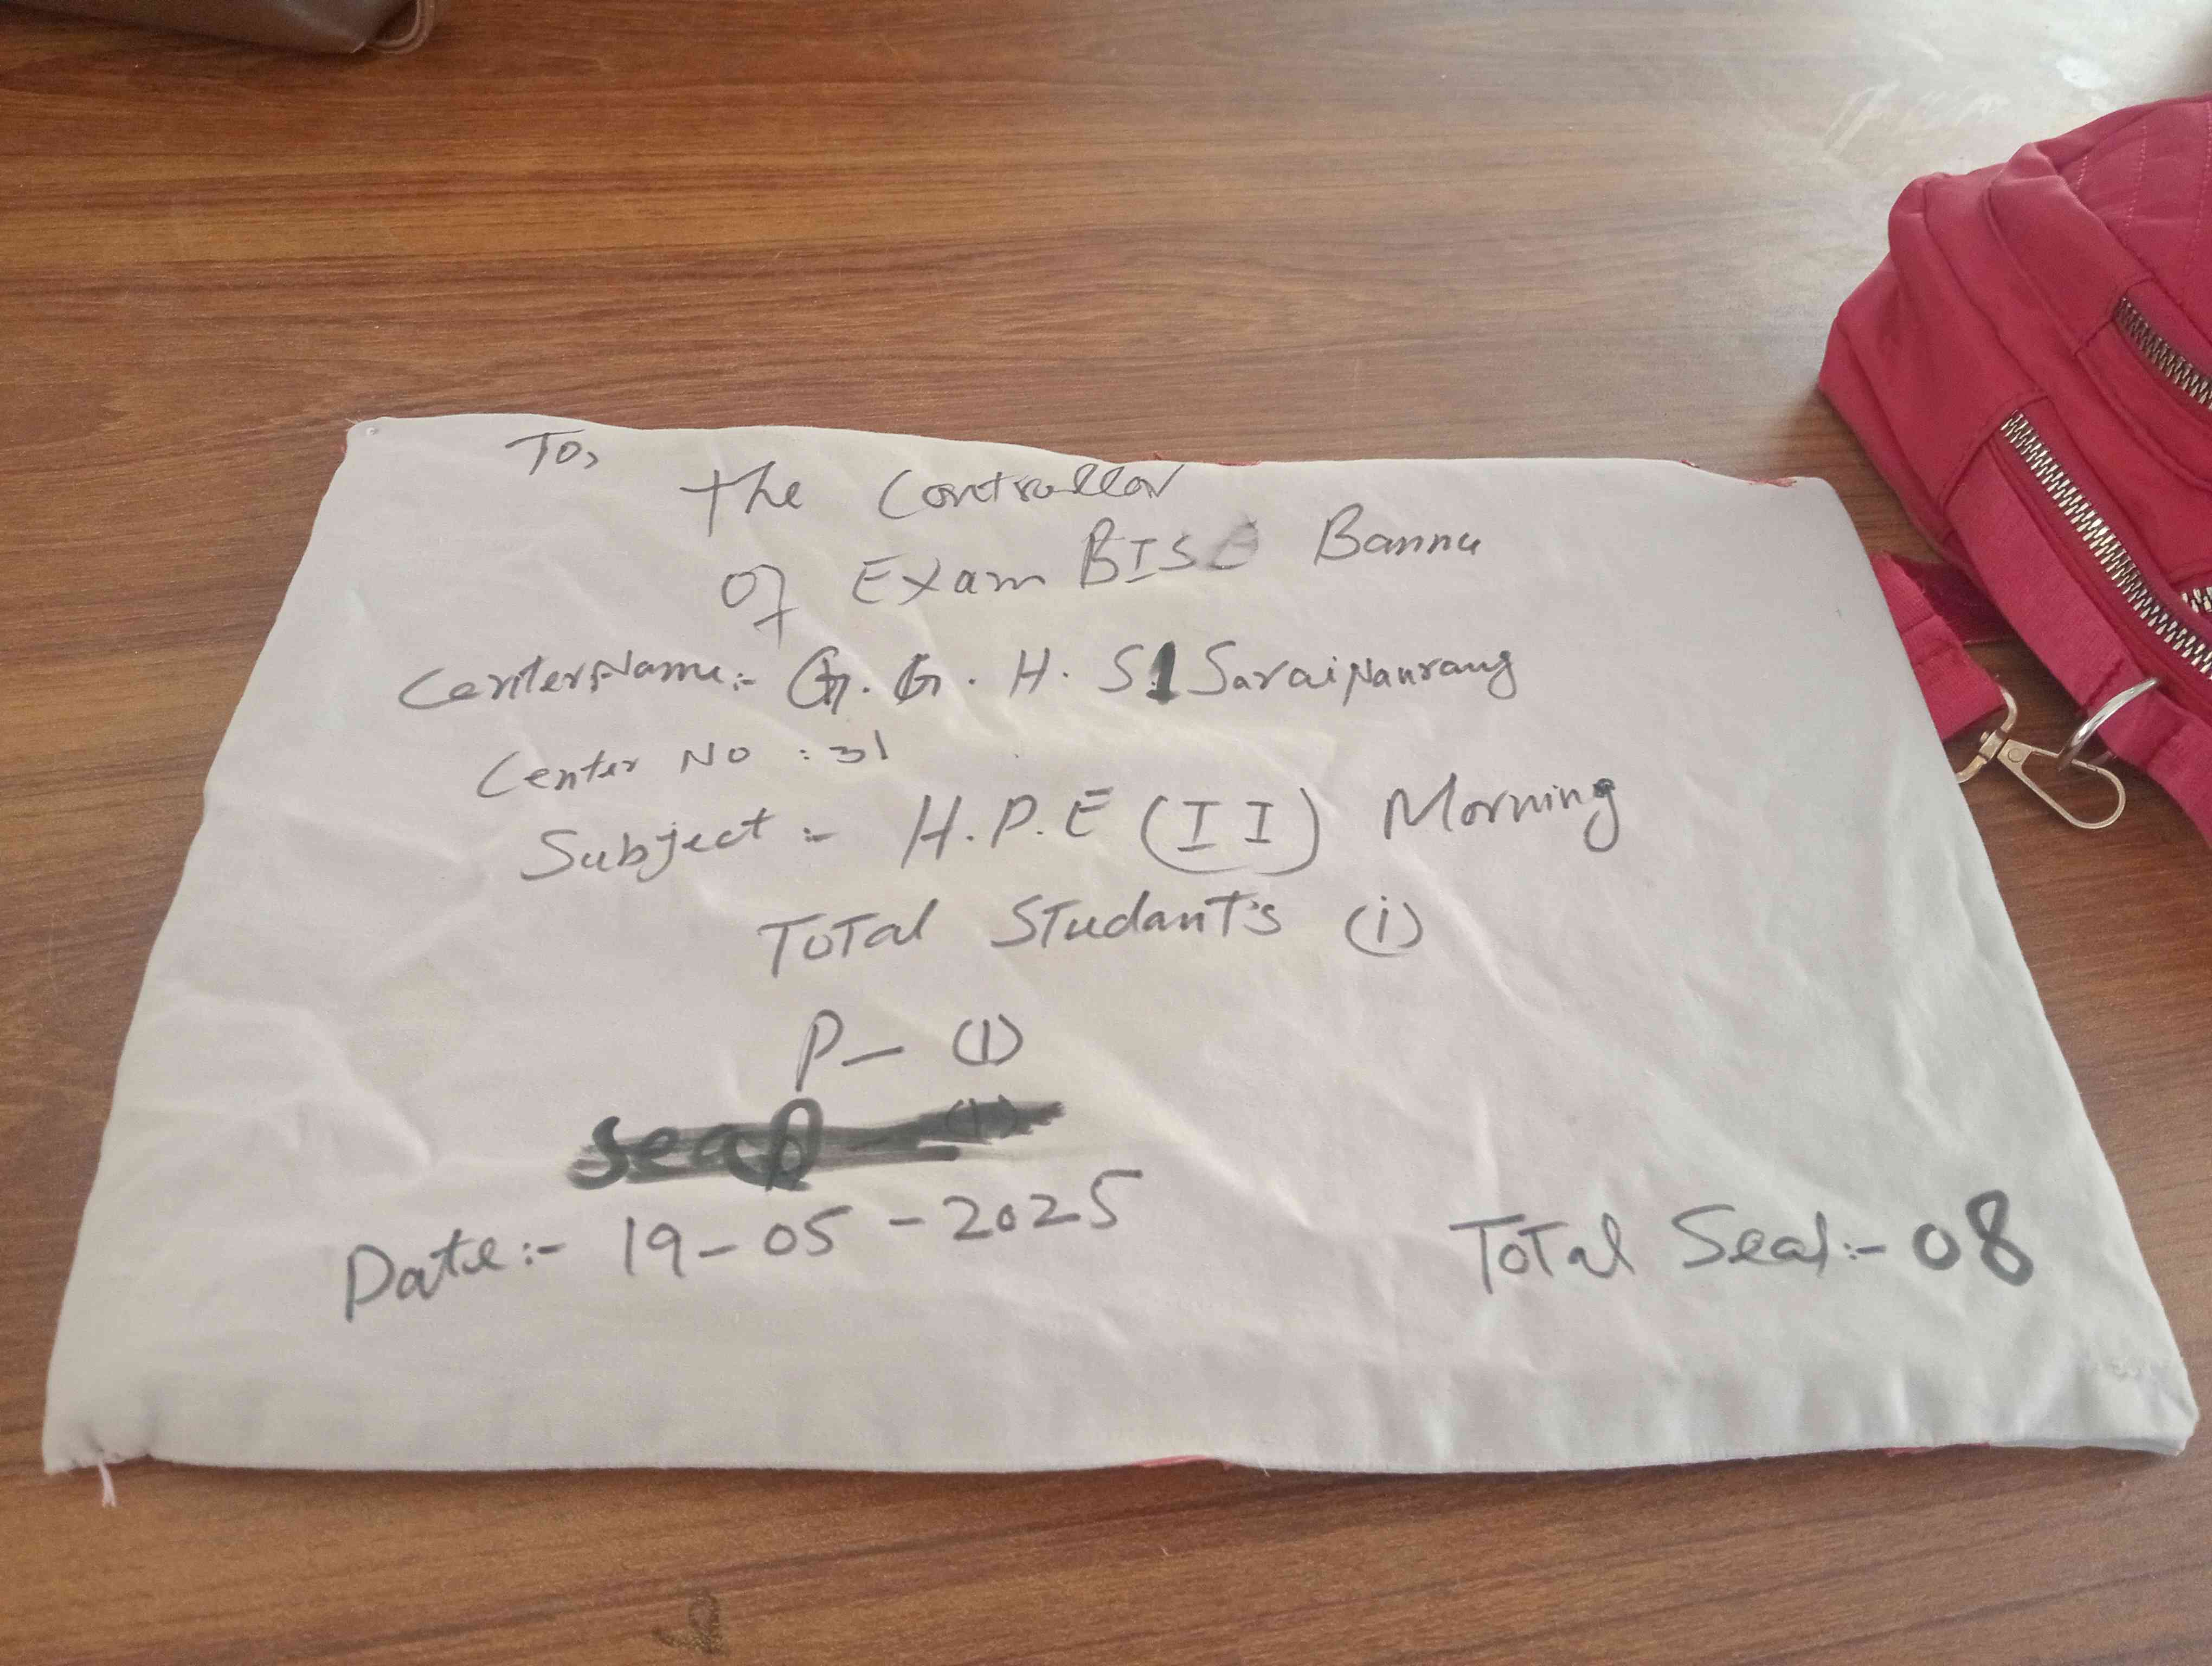 To,
The Controllar
of Exam BISE Bannu
Center Name:- G.G.H.S 1 Sarai Naurang
Center No : 31
Subject :- H.P.E (II) Morning
Total Studant's (1)
P- (1)
Seal - (1)
Date:- 19-05-2025
Total Seal:- 08